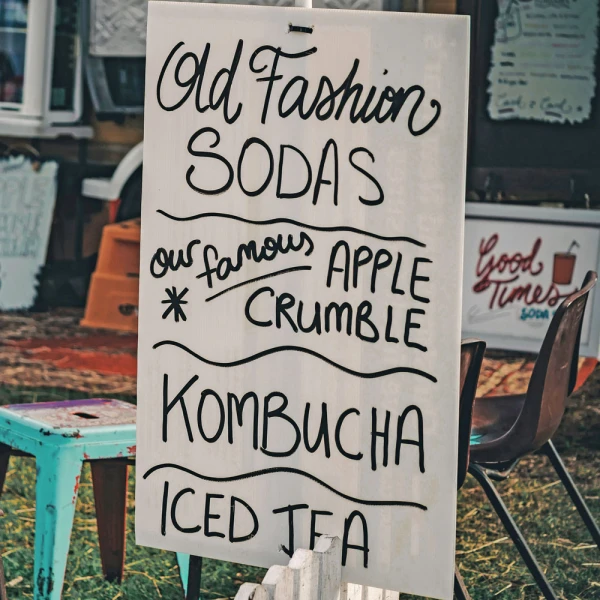 Old Fashion
SODAS
our famous APPLE
* CRUMBLE
KOMBUCHA
ICED TEA
Good
Times
SODA